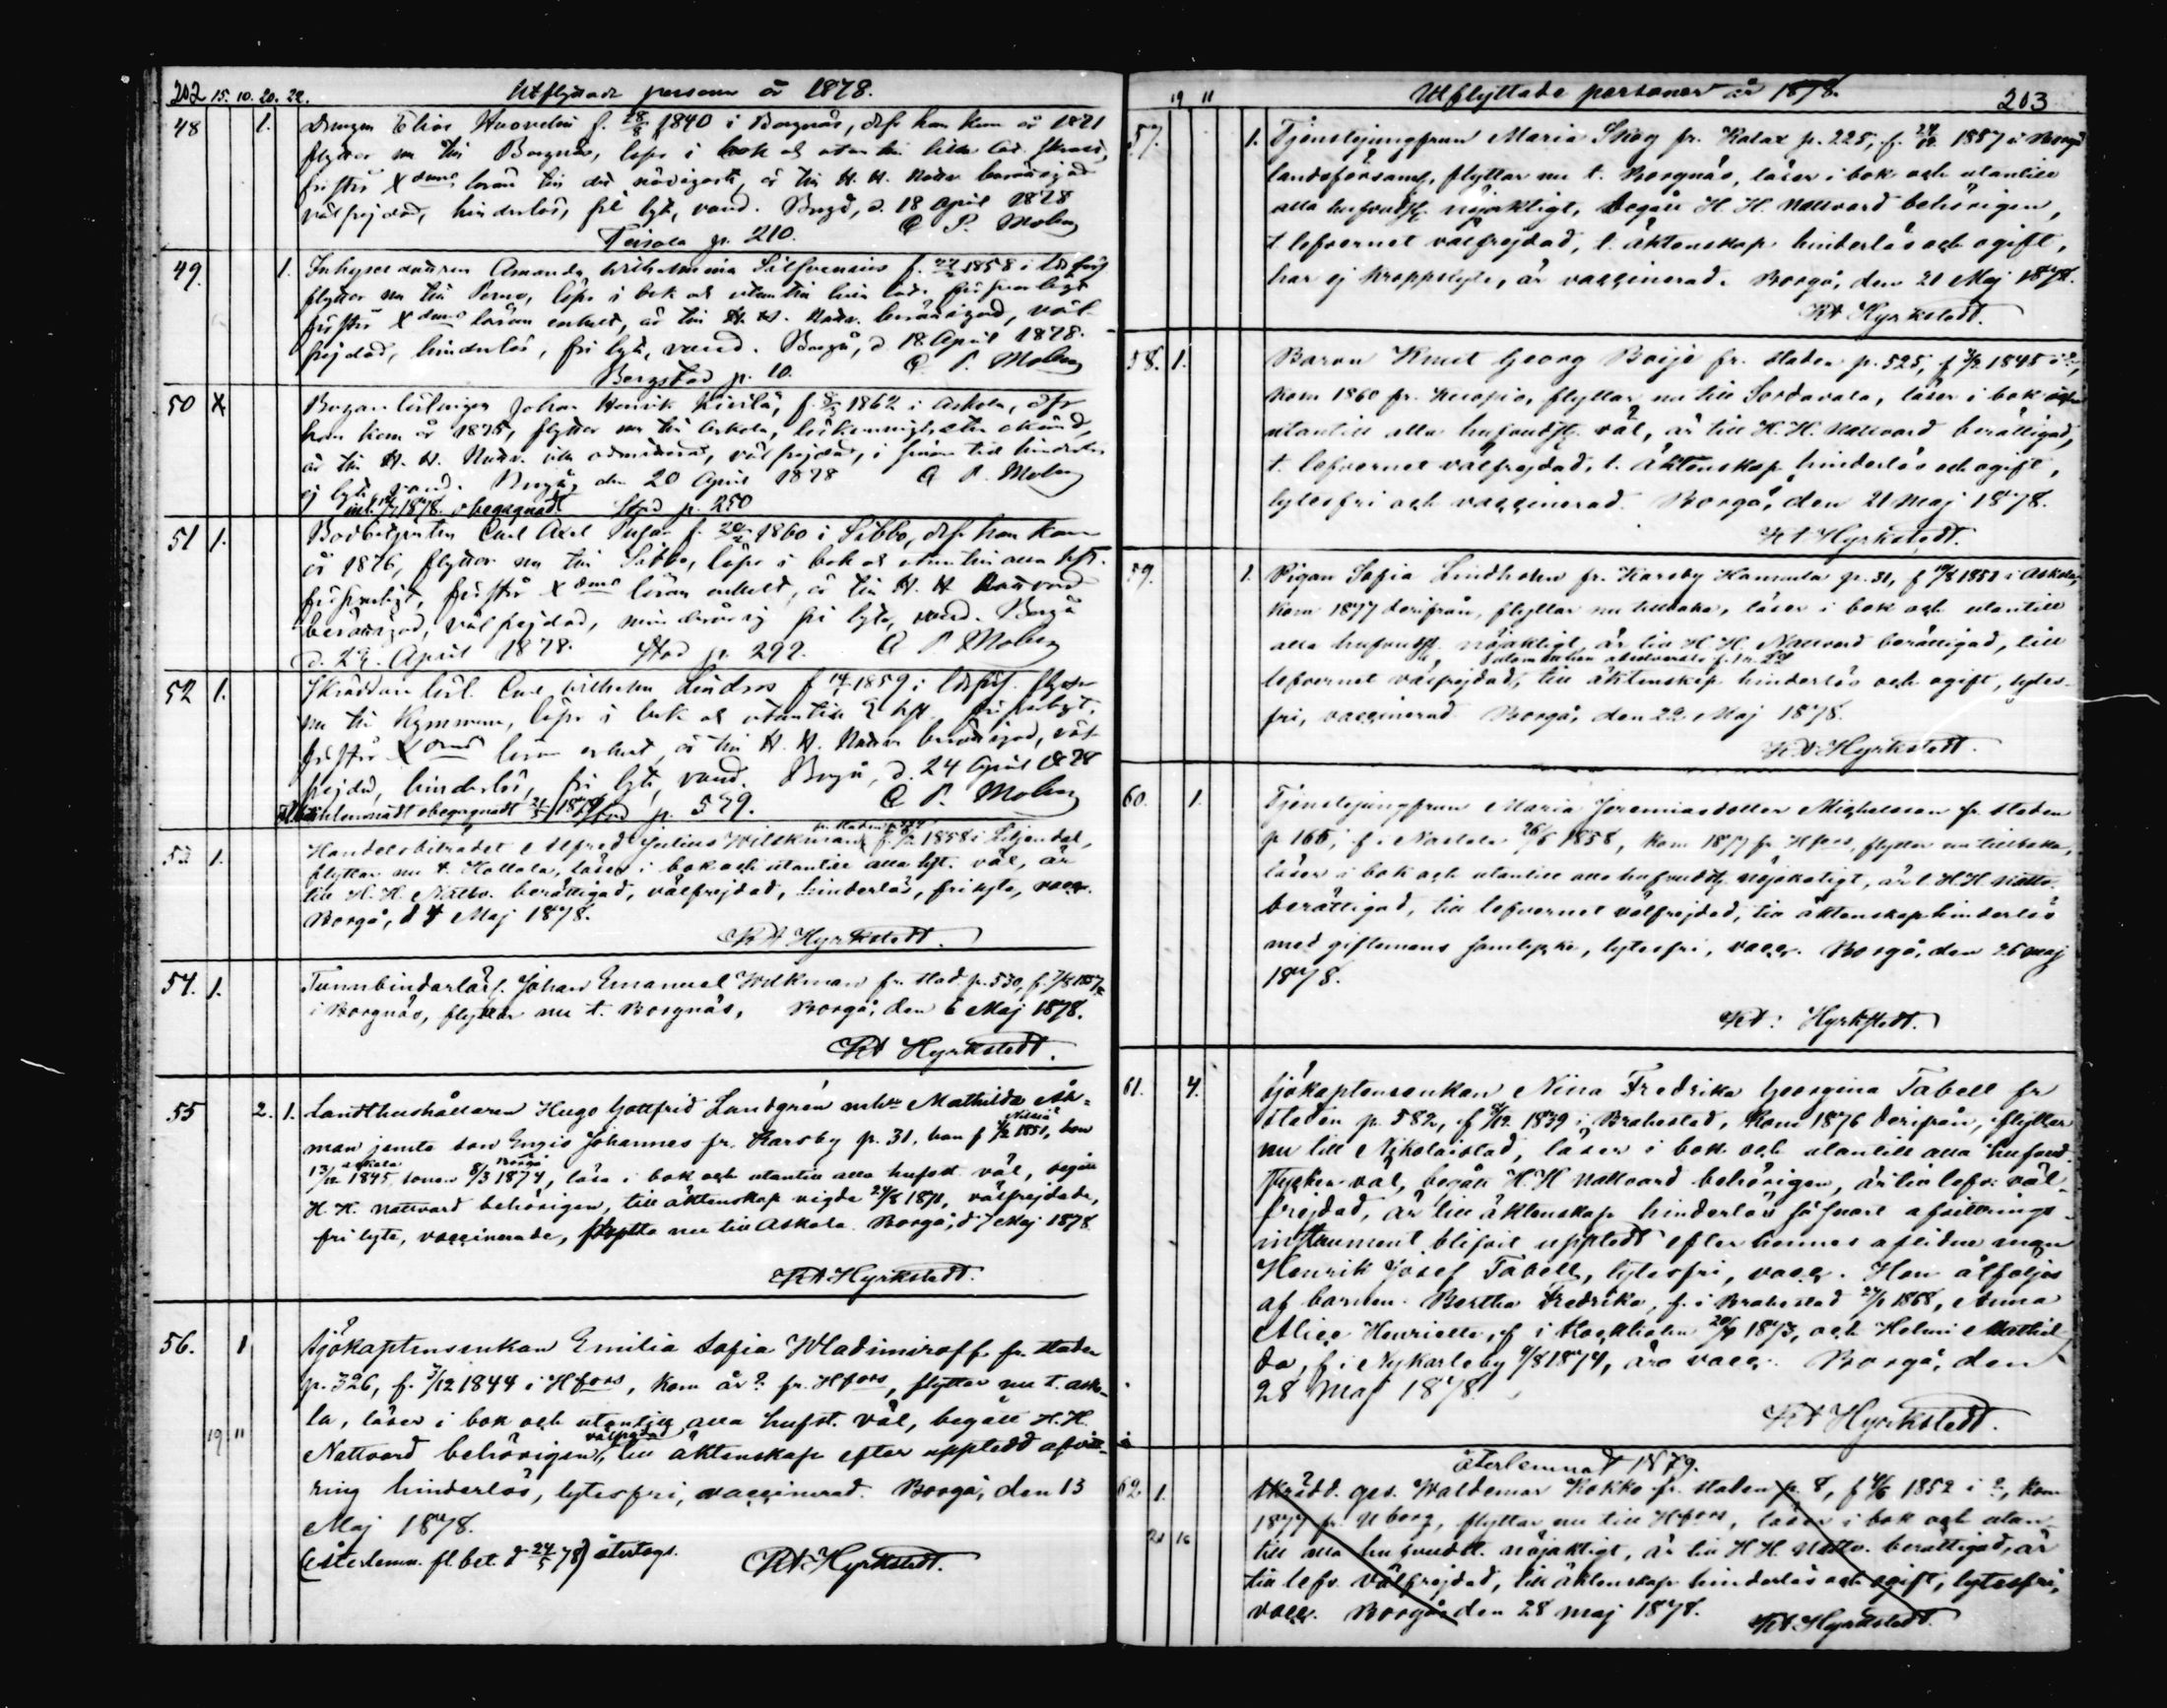 202 15. 10. 20. 22. Utflyttade personer år 1878.
48 1. Drengen Elias f. 28/8 1840 i Borgnäs, dfr han kom år 1871
flyttar nu till Borgnäs, läser i bok och utan till
förstår Xdoms läran till det nödigaste, är till H. H. Nattv. berättigad
välfrejdad, hinderlös, fri lyte, vaccd. Borgå, d. 18 April 1878
p. 210. C. P. Moberg
49. 1. Inhyses Amanda Wilhelmina Silfvenius f. 1858 i
flyttar nu till Perno, läser i bok och utantill
förstår Xdoms läran enkelt, är till H. H. Nattv. berättigad, väl-
frejdad, hinderlös, fri lyte, vaccd. Borgå, d. 18 April 1878.
Borgstad p. 10. C. P. Moberg
50 X Johan Henrik f. 1862 i Askola, dfr
han kom år 1875, flyttar nu till Askola,
är till H. H. Nattv. välfrejdad, i hinderlös
ej lyte, vaccd. Borgå, den 20 April 1878 C. P. Moberg
1878. obegagnadt Stad p. 250
51 1. Bodbetjenten Carl Axel f. 1860 i Sibbo, dfr han kom
år 1876, flyttar nu till Sibbo, läser i bok och utantill alla hft.
förstår Xdoms läran enkelt, är till H. H. Nattvard
berättigad, välfrejdad, fri lyte, vaccd. Borgå
d. 24. April 1878. Stad p. 292. C. P. Moberg
52 1. Skräddare lärl. Carl Wilhelm Lindroos f. 14/ 1859 i
nu till Kymmene, läser i bok och utantill
förstår Xdoms läran enkelt, är till H. H. Nattv. berättigad, väl-
frejdad, hinderlös, fri lyte, vaccd. Borgå, d. 24 April 1878
obegagnadt 21/5 1879 Stad p. 579. C. P. Moberg
53 1. Handelsbiträdet Alfred Julius Wilskman 1858 i Liljendal,
flyttar nu t. Hollola, läser i bok och utantill alla hft. väl, är
till H. H. Nattv. berättigad, välfrejdad, hinderlös, fri lyte, vacc.
Borgå, d 4 Maj 1878.
KA Hyrkstedt.
54. 1. Tunnbindarlärl. Johan Emanuel Wilkman fr. stad. p. 530, f.
i Borgnäs, flyttar nu t. Borgnäs, Borgå, den 6 Maj 1878.
KA Hyrkstedt.
55 2. 1. Landthushållaren Hugo Gottfrid Lundgrén m. hu Mathilda Åk-
man jemte son Johannes fr. Karsby p. 31, han f 1851, hon
13/12 1845, sonen 8/3 1874, läsa i bok och utantill alla hufst. väl, begått
H. H. nattvard behörigen, till äktenskap vigda 24/8 1871, välfrejdade,
fri lyte, vaccinerade, flytta nu till Askola. Borgå, d 7 Maj 1878.
KA Hyrkstedt.
56. 1 Sjökaptensenkan Emilia Sofia Wladimiroff fr. staden
p. 326, f. 3/12 1844 i Hfors, kom år ? fr. Hfors, flyttar nu t. Asko-
la, läser i bok och utantill alla hufst. väl, begått H. H.
19 11 Nattvard behörigen, välfrejdad till äktenskap efter uppledd afvitt-
ring hinderlös, lytesfri, vaccinerad. Borgå, den 13
Maj 1878.
(Återlemn. fl. bet. d 24/5 78) återtogs. KA Hyrkstedt.
19 11 Utflyttade personer år 1878. 203
57. 1. Tjenstejungfrun Maria Skog fr. Kalax p. 225, f. 1857 i Borgå
landsförsaml, flyttar nu t. Borgnäs, läser i bok och utantill
alla hufvudst. nöjaktigt, begått H. H. Nattvard behörigen,
t. lefvernet välfrejdad, t. äktenskap hinderlös och ogift,
har ej kroppslyte, är vaccinerad. Borgå, den 21 Maj 1878.
KA Hyrkstedt.
58. 1. Baron Knut Georg Boije fr. staden p. 525, f 1845 i ?,
kom 1860 fr. Kuopio, flyttar nu till Sordavala, läser i bok och
utantill alla hufvudst. väl, är till H. H. Nattvard berättigad,
t. lefvernet välfrejdad, t. äktenskap hinderlös och ogift,
lytesfri och vaccinerad. Borgå, den 21 Maj 1878.
KA Hyrkstedt.
59. 1. Pigan Sofia Lindholm fr. Karsby Hammars p. 31, f 1852 i Askola,
kom 1877 derifrån, flyttar nu tillbaka, läser i bok och utantill
alla hufvudst. nöjaktigt, är till H. H. Nattvard berättigad, till
lefvernet välfrejdad, till äktenskap hinderlös och ogift, lytes-
fri, vaccinerad. Borgå, den 22 Maj 1878.
KA Hyrkstedt.
60. 1. Tjenstejungfrun Maria Jeremiasdotter Michelsson fr. staden
p 165, f. i Nastola 26/6 1858, kom 1877 fr. Hfors, flyttar nu tillbaka,
läser i bok och utantill alla hufvudst. nöjaktigt, är t. H. H. Nattv.
berättigad, till lefvernet välfrejdad, till äktenskap hinderlös
med giftomans samtycke, lytesfri, vacc. Borgå, den 26 Maj
1878.
KA: Hyrkstedt.
61. 4. Sjökaptensenkan Nina Fredrika Georgina Tabell fr
staden p. 582, f 1839 i Brahestad, kom 1876 derifrån, flyttar
nu till Nikolaistad, läser i bok och utantill alla hufvud-
stycken väl, begått H. H nattvard behörigen, är till lefv. väl-
frejdad, är till äktenskap hinderlös så snart afvittrings-
instrument blifvit uppledt efter hennes aflidne man
Henrik Josef Tabell, lytesfri, vacc. Hon åtföljes
af barnen: Bertha Fredrika, f. i Brahestad 1868, Anna
Alice Henriette, f i Stockholm 1873, och Helmi Mathil-
da, f. i Nykarleby 9/8 1874, äro vacc. Borgå, den
28 Maj 1878.
KA Hyrkstedt.
Återlemnad 1879.
62 1. Skrädd. ges. Waldemar Kokko fr. staden p. 8, f 4/6 1852 i ?, kom
1877 fr. Uborg, flyttar nu till Hfors, läser i bok och utan
till alla hufvudst. nöjaktigt, är till H. H. Nattv. berättigad, är
till lefv. välfrejdad, till äktenskap hinderlös och ogift, lytesfri,
vacc. Borgå, den 28 Maj 1878. KA Hyrkstedt.